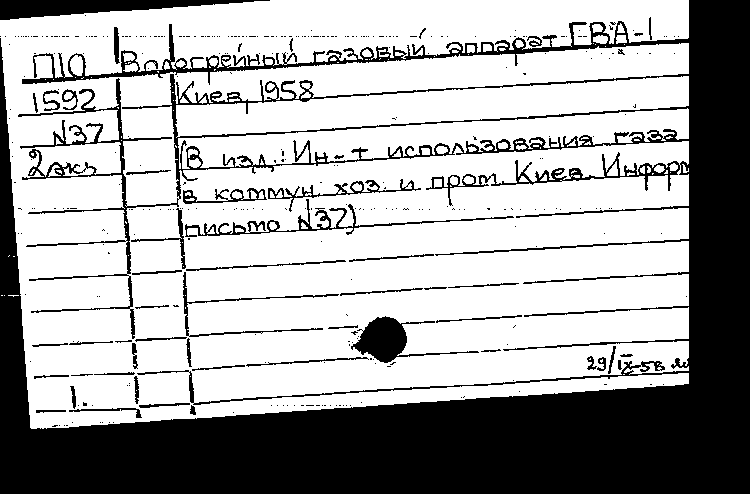 П10 Водогрейный газовый аппарат ГВА-1
1592 Киев, 1958
N37
2экз (В изд.: Ин-т использования газа
в коммун. хоз. и пром. Киев. Информ
письмо N37)
29/IX-58
1.